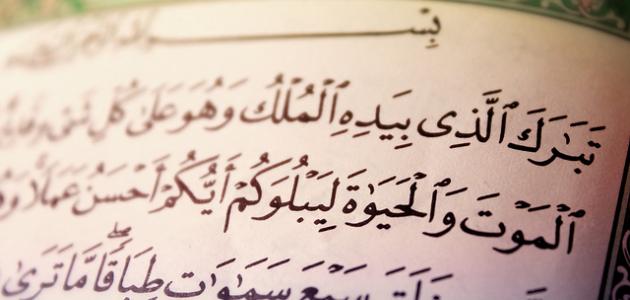 بِسْـــــــــمِ
تَبَٰرَكَ ٱلَّذِى بِيَدِهِ ٱلْمُلْكُ وَهُوَ عَلَىٰ كُلِّ شَىْءٍ
ٱلْمَوْتَ وَٱلْحَيَوٰةَ لِيَبْلُوَكُمْ أَيُّكُمْ أَحْسَنُ عَمَلًا
سَبْعَ سَمَٰوَٰتٍ طِبَاقًا ۖ مَّا تَرَىٰ